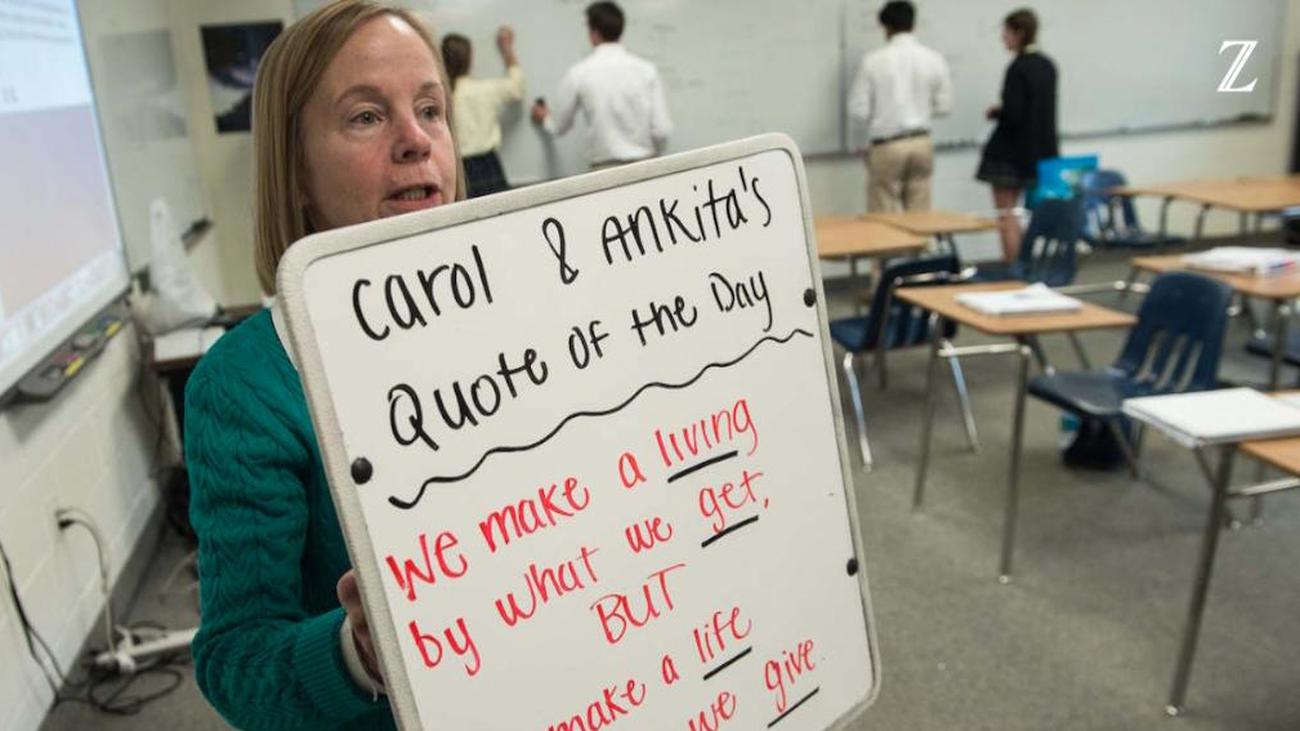 Carol & Ankita's
Quote of the Day
We make a living
by what we get,
BUT
make a life
we give
Z